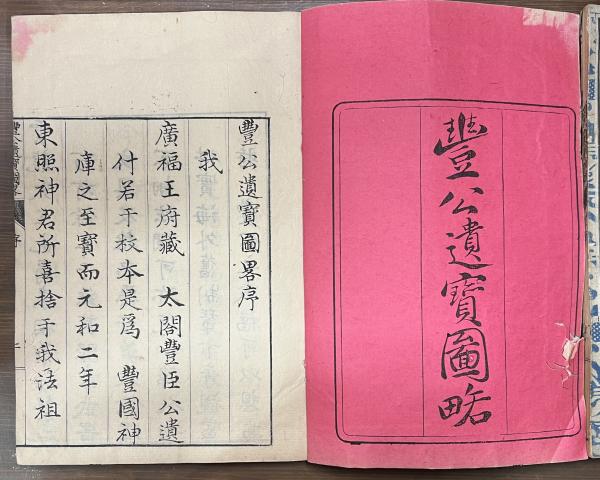 豐公遺寶圖畧
豐公遺寶圖畧序
我
廣福王府藏　太閤豐臣公遺
付若干校本是爲　豐國神
庫之至寳而元和二年
東照神君所喜捨于我法祖
序